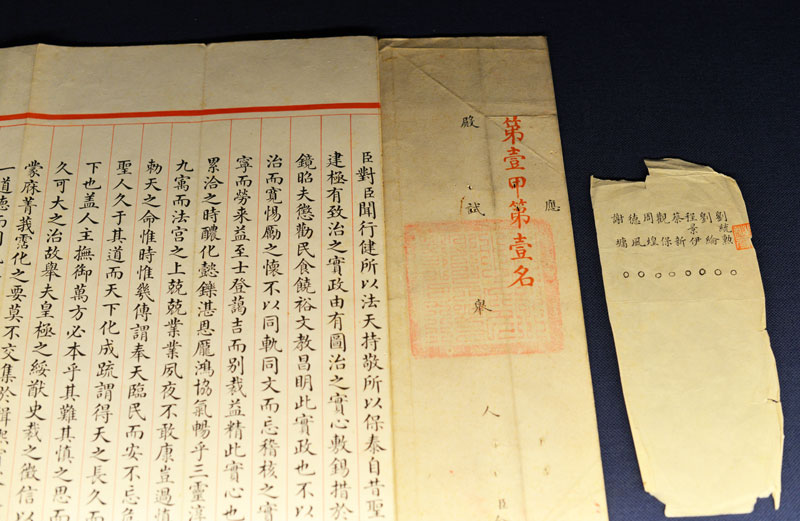 劉統勲
劉綸
程景伊
蔡新
觀保
周煌
德風
謝墉
應
殿試舉人臣
第壹甲第壹名
臣對臣聞行健所以法天持敬所以保泰自昔聖
建極有致治之實政由有圖治之實心敷錫措於
鏡昭夫懲勸民食饒裕文教昌明此實政也不以
治而寬惕勵之懷不以同軌同文而忘稽核之實
寧而勞來益至士登藹吉而別裁益精此實心也
累洽之時醲化懿鑠湛恩厖鴻協氣暢乎三靈淳
九㝢而法宮之上兢兢業業夙夜不敢康豈過慎
勅天之命惟時惟幾傳謂奉天臨民而安不忘危
聖人久于其道而天下化成疏謂得天之長久而
下也盖人主撫御萬方必本乎其難其慎之思而
久可大之治故舉夫皇極之綏猷史裁之徵信以
蒙庥菁莪霑化之要莫不交集於
一道德而同